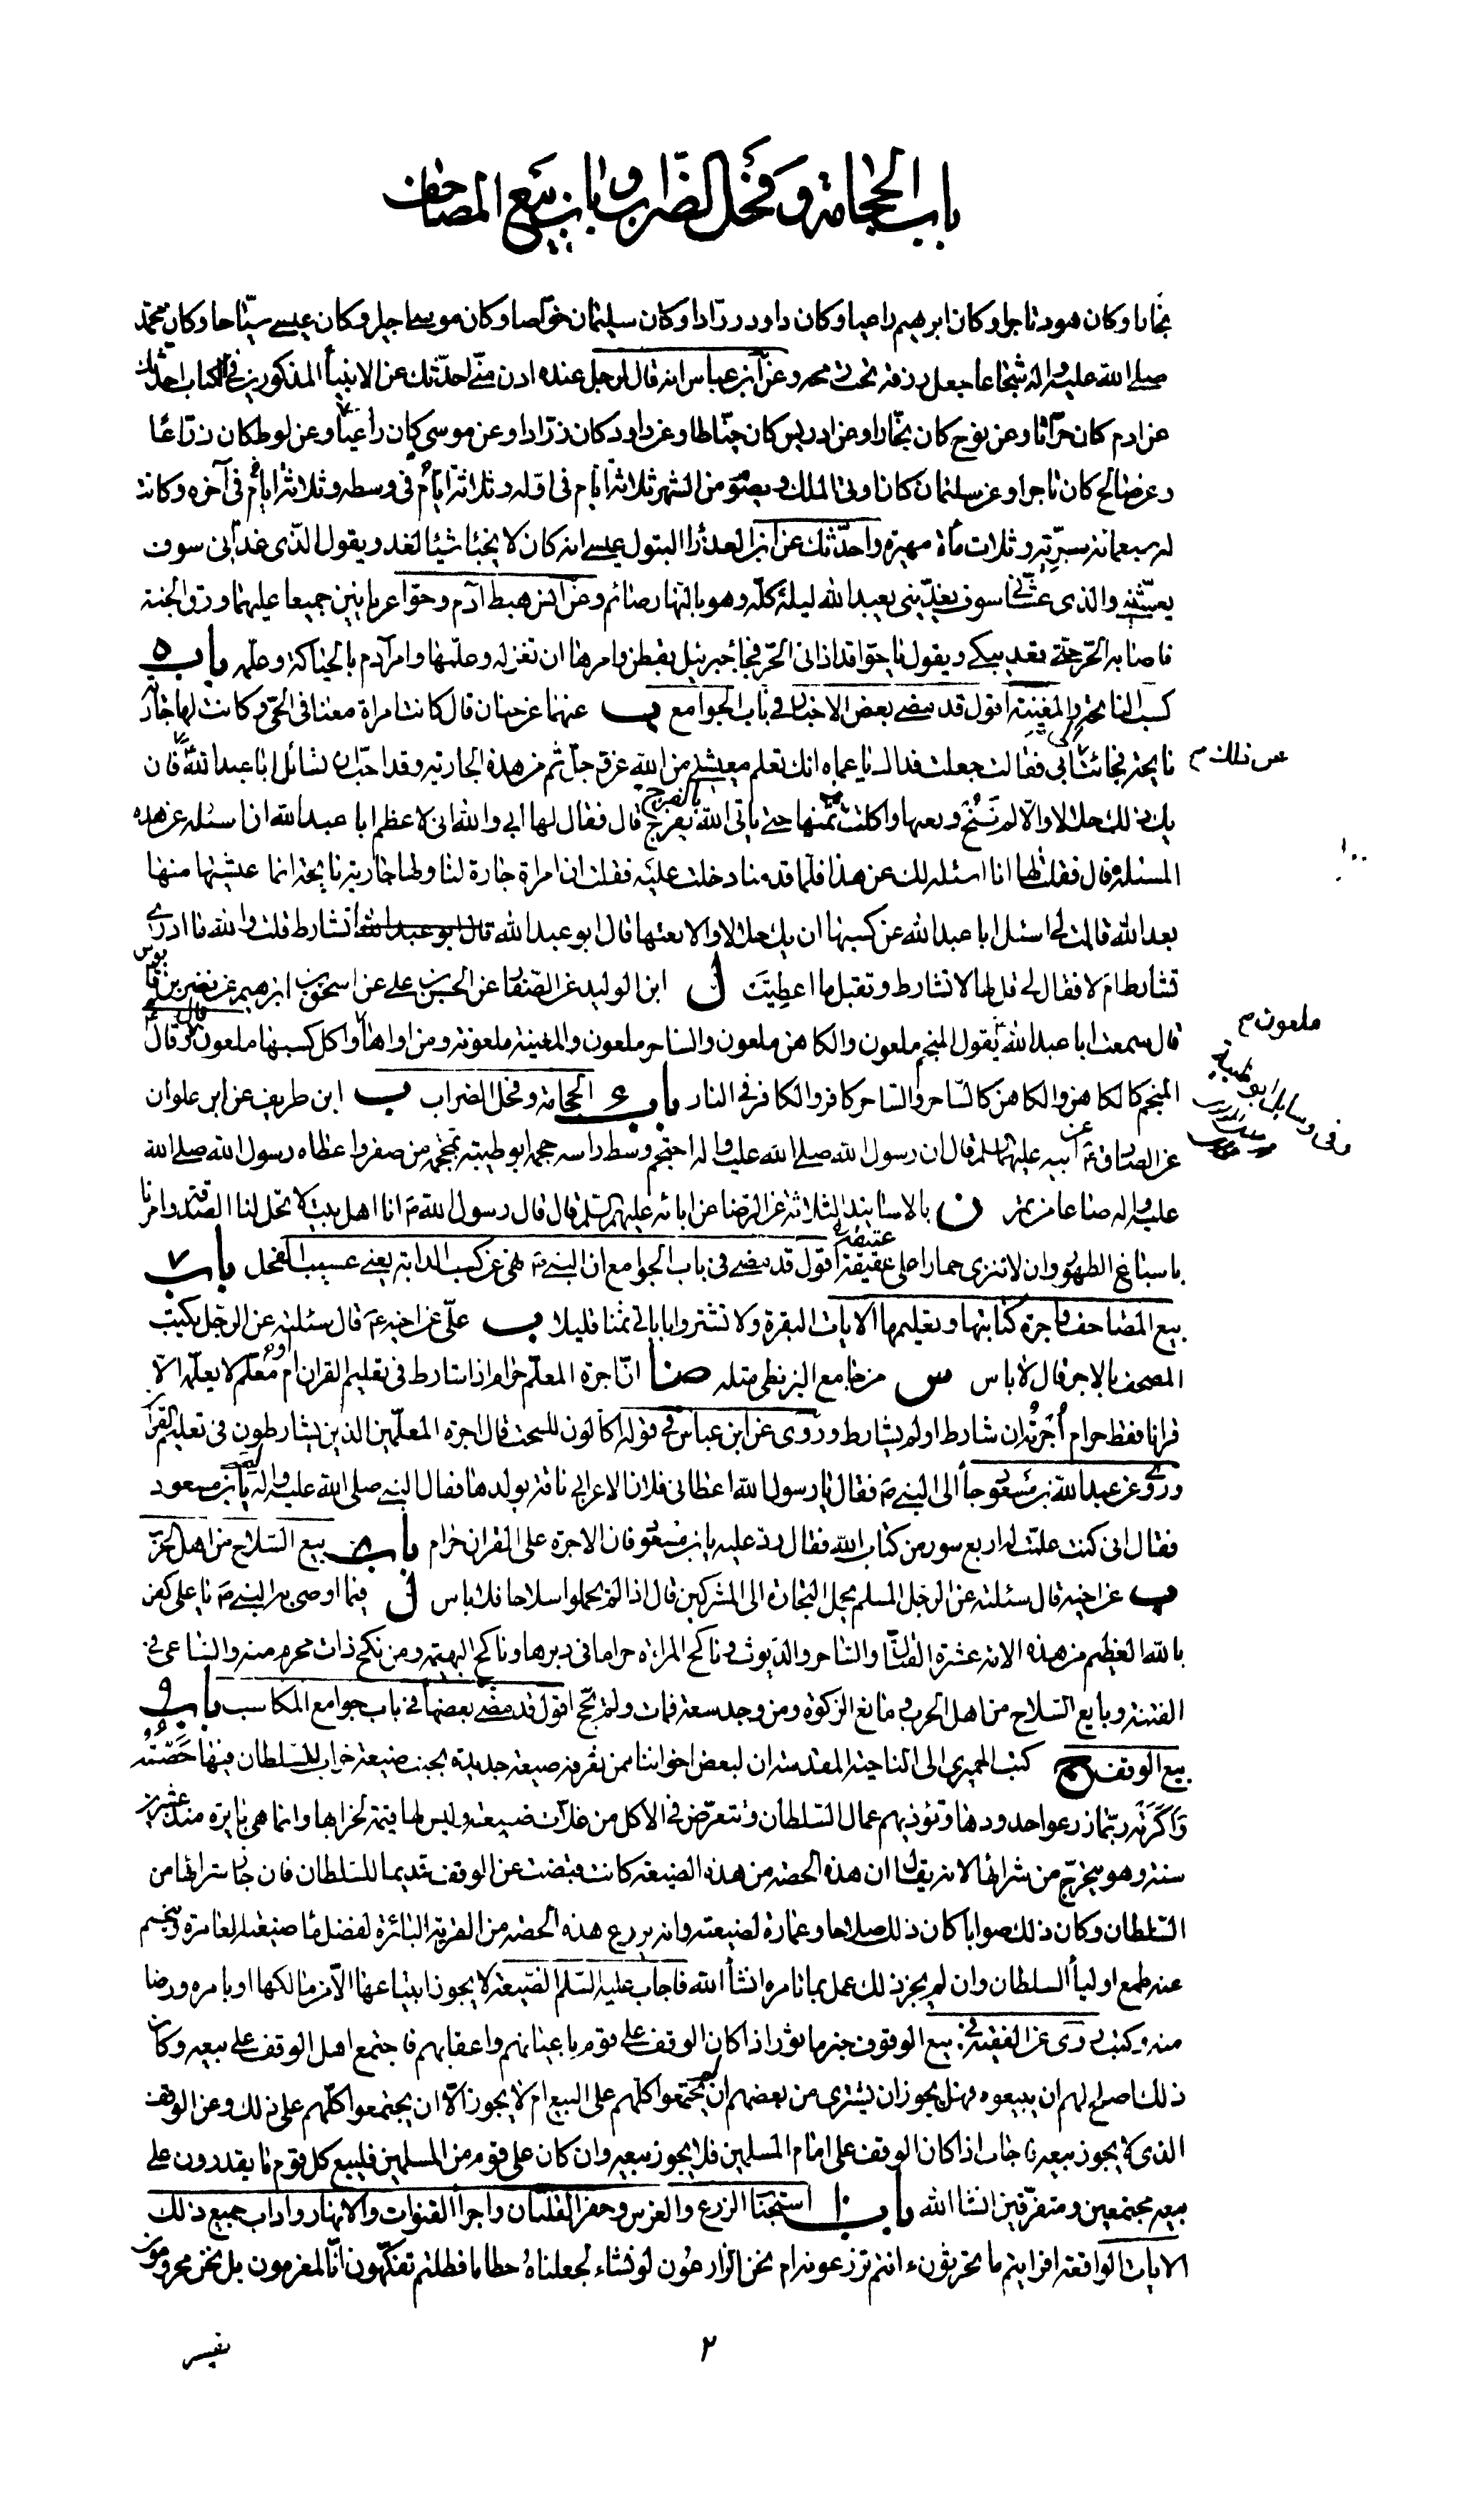 باب الحجامة وفحل الضراب وباب بيع المصاحف
نجارا وكان هود تاجرا وكان ابرهيم راعيا وكان داود زرّادا وكان سليمان خوّاصا وكان موسى اجيرا وكان عيسى سيّاحا وكان محمّد
صلى الله عليه واله شجاعا جعل رزقه تحت رمحه وعن ابن عباس انه قال لرجل عنده ادن منّى احدّثك عن الانبيآء المذكورين فى الكتاب احدثك
عن ادم كان حرّاثا وعن نوح كان نجّارا وعن ادريس كان خيّاطا وعن داود كان زرّادا وعن موسى كان راعيا وعن لوط كان زرّاعا
وعن صالح كان تاجرا وعن سليمان كان اوتى الملك ويصوم من الشهر ثلاثة ايّام فى اوّله وثلاثة ايّام فى وسطه وثلاثة ايّام فى آخره وكانت
له سبعمائة سرّية وثلاث مأة مهيرة واحدّثك عن ابن العذرآء البتول عيسى انه كان لا يخبأ شيئا لغد ويقول الّذى غدّانى سوف
يعشّينى والذى عشّانى سوف يغدّينى يعبد الله ليلة كلّه وهو بالنّهار صائم وعن انس هبط آدم وحوّا عريانين جميعا عليهما ورق الجنة
فاصابه الحرّ حتّى قعد يبكى ويقول يا حوّا قد اذانى الحرّ فجاء جبرئيل بقطن وامرها ان تغزله وعلّمها وامر آدم بالحياكة وعلّمه باب ٥
كسب النايحة والمغنية اقول قد مضى بعض الاخبار فى باب الجوامع ب عنهما عن حنان قال كانت امراة معنا فى الحىّ وكانت لها جارية
نايحة فجائت الى ابى فقالت جعلت فداك يا عماه انك تعلم معيشتى من الله عزّ وجلّ ثم من هذه الجارية وقد احبّ ان تسائل ابا عبد الله ع فان
يك ذلك حلالا والاّ لم تنح وبعتها واكلت ثمنها حتى ياتى الله بفرج قال فقال لها ابى والله انى لاعظم ابا عبد الله ان اسئله عن هذه
المسئلة قال فقلت لها انا اسئله لك عن هذا فلما قدمنا دخلت عليه فقلت ان امراة جارة لنا ولها جارية نايحة انما عيشتها منها
بعد الله قالت لى اسئل ابا عبد الله عن كسبها ان يك حلالا والا بعتها قال ابو عبد الله قال ابو عبد الله تشارط قلت والله ما ادرى
تشارط ام لا فقال لى قل لها لا تشارط وتقبل ما اعطيت ل ابن الوليد عن الصّفار عن الحسن بن على عن اسحق بن ابرهيم عن نضر بن قابوس
قال سمعت ابا عبد الله ع يقول المنجم ملعون والكاهن ملعون والساحر ملعون والمغنية ملعونة ومن اواها واكل كسبها ملعون وقال ع
المنجم كالكاهن والكاهن كالسّاحر والساحر كافر والكافر فى النار باب ٦ الحجامة وفحل الضراب ب ابن طريف عن ابن علوان
عن الصادق عن ابيه عليهما السلم قال ان رسول الله صلى الله عليه واله احتجم وسط راسه حجمه ابو طيبة بمحجمة من صفر واعطاه رسول الله صلى الله
عليه واله صاعا من تمر ن بالاسانيد الثلاثة عن الرّضا عن ابائه عليهم السّلم قال قال رسول الله ص انا اهل بيت لا تحل لنا الصّدقة وامرنا
باسباغ الطهور وان لا ننزى حمارا على عتيقة اقول قد مضى فى باب الجوامع ان النبى ص نهى عن كسب الدابة يعنى عسيب الفحل باب ٧
بيع المصاحف واجرة كتابتها وتعليمها الايات البقرة ولا تشتروا باياتى ثمنا قليلا ب علّى عن اخيه ع قال سئلته عن الرجل يكتب
المصحف بالاجر قال لا باس س من جامع البزنطى مثله ضا انّ اجرة المعلّم حرام اذا شارط فى تعليم القران او معلّم لا يعلّمه الاّ
قرانا فقط حرام اُجرته ان شارط او لم يشارط وروى عن ابن عباس فى قوله اكالون للسحت قال اجرة المعلّمين الذين يشارطون فى تعليم القرآن
وروى عن عبد الله بن مسعود جآء الى النبى ص فقال يا رسول الله اعطانى فلان الاعرابى ناقة بولدها فقال النبى صلى الله عليه واله لم يا ابن مسعود
فقال انى كنت علّمت له اربع سور من كتاب الله فقال ردّ عليه يا بن مسعود فان الاجرة على القران حرام باب ٨ بيع السّلاح من اهل الحرب
ب عن اخيه قال سئلته عن الرجل المسلم يحمل التجارة الى المشركين قال اذا لم يحملوا سلاحا فلا باس ل فيما اوصى به النبى ص يا على كفر
بالله العظيم من هذه الامة عشرة القتّات والساحر والديّوث وناكح المراة حراما فى دبرها وناكح البهيمة ومن نكح ذات محرم منه والسّاعى فى
الفتنة وبايع السّلاح من اهل الحرب ومانع الزكوة ومن وجد سعة فمات ولم يحجّ اقول قد مضى بعضها فى باب جوامع المكاسب باب ٩
بيع الوقف ج كتب الحميرى الى الناحية المقدسة ان لبعض اخواننا ممن نعرفه ضيعة جديدة بجنب ضيعة خراب للسّلطان فيها حصّته
واكرته ربّما زرعوا حدودها وتؤذيهم عمال السّلطان وتتعرّض فى الاكل من غلاّت ضيعته وليس لها قيمة لخرابها وانما هى بايرة منذ عشرين
سنة وهو يتحرّج من شرائها لانه يقال ان هذه الحصة من هذه الضيعة كانت قبضت عن الوقف قديما للسّلطان فان جاز شرائها من
السّلطان وكان ذلك صوابا كان ذلك صلاحا وعمارة لضيعته وانه يزرع هذه الحصة من القرية البائرة لفضل ماء ضيعته العامرة وينحسم
عنه طمع اوليآء السلطان وان لم يجز ذلك عمل بما تامره انشاء الله فاجاب عليه السّلم الضّيعة لا يجوز ابتياعها الاّ من مالكها او بامره ورضا
منه وكتب روى عن الفقيه فى بيع الوقوف خبر ماثور اذا كان الوقف على قوم باعيانهم واعقابهم فاجتمع اهل الوقف على بيعه وكان
ذلك اصلح لهم ان يبيعوه فهل يجوز ان يشترى من بعضهم ان لم يجتمعوا كلّهم على البيع ام لا يجوز الاّ ان يجتمعوا كلّهم على ذلك وعن الوقف
الذى لا يجوز بيعه فاجاب اذا كان الوقف على امام المسلمين فلا يجوز بيعه وان كان على قوم من المسلمين فليبع كل قوم ما يقدرون على
بيعه مجتمعين ومتفرّقين انشاء الله باب ١٠ استحباب الزرع والغرس وحفر القلبان واجراء القنوات والانهار واداب جميع ذلك
الايات الواقعة افرايتم ما تحرثون ءانتم تزرعونه ام نحن الزارعون لو نشاء لجعلناه حطاما فظلتم تفكّهون انّا لمغرمون بل نحن محرومون
٢
تفسير
عن ذلك م
ملعون م